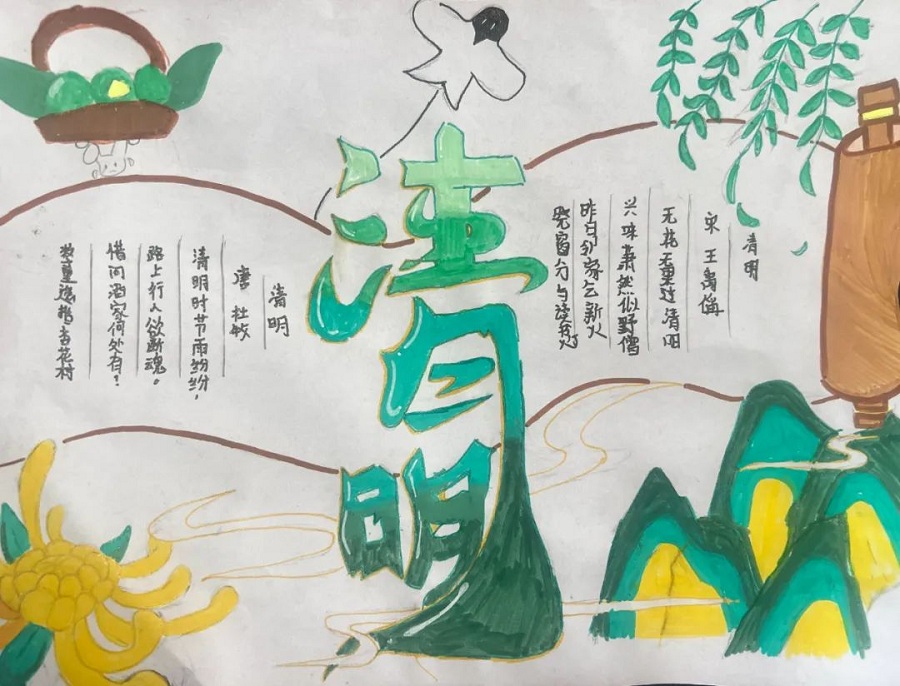 清明
清明
宋 王禹偁
无花无酒过清明
兴味萧然似野僧
昨日邻家乞新火
晓窗分与读灯
清明
唐 杜牧
清明时节雨纷纷，
路上行人欲断魂。
借问酒家何处有？
牧童遥指杏花村